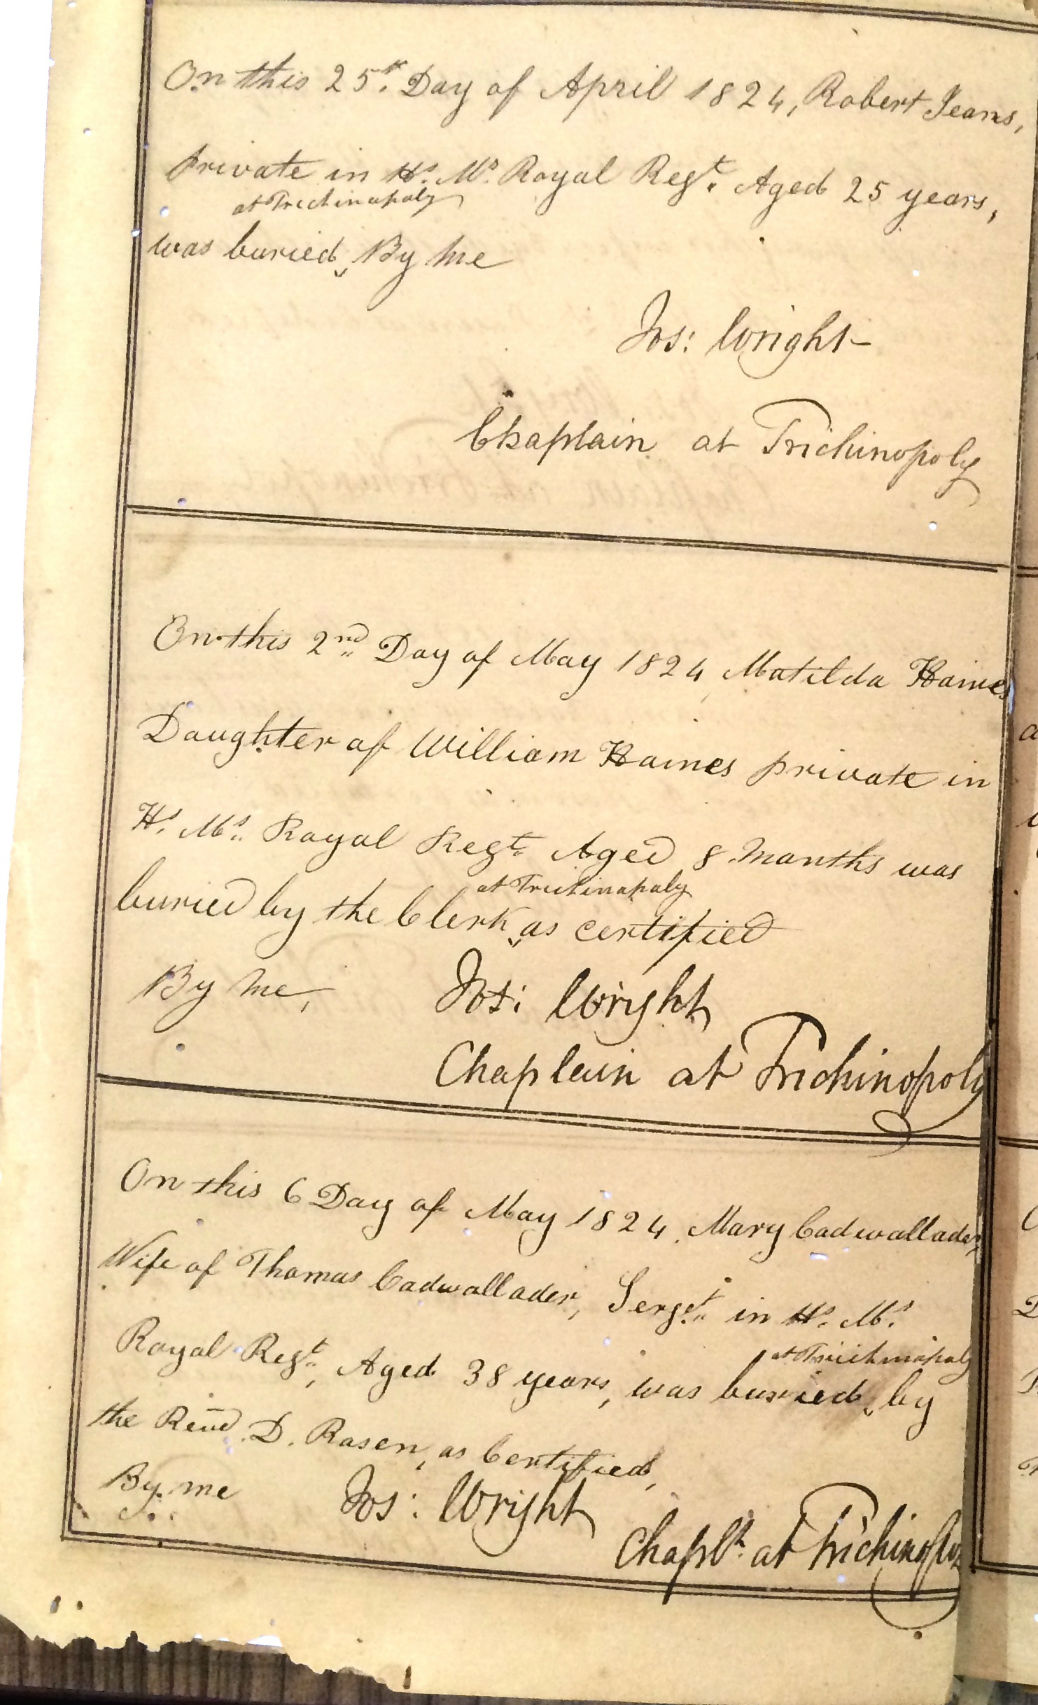 On this 25th. Day of April 1824, Robert Jeans,
private in Hs. Ms. Royal Regt. Aged 25 years,
at Trichinopoly
was buried By me
Jos: Wright
Chaplain at Trichinopoly
On this 2nd Day of May 1824 Matilda Haines
Daughter of William Haines private in
Hs. Ms. Royal Regt. Aged 8 Months was
at Trichinopoly
buried by the Clerk as certified
By me, Jos: Wright
Chaplain at Trichinopoly
On this 6 Day of May 1824, Mary Cadwallader,
Wife of Thomas Cadwallader, Sergt. in Hs. Ms.
at Trichinopoly
Royal Regt., Aged 38 years, was buried by
the Revd. D. Rosen, as Certified,
By me Jos: Wright
Chapln. at Trichinopoly